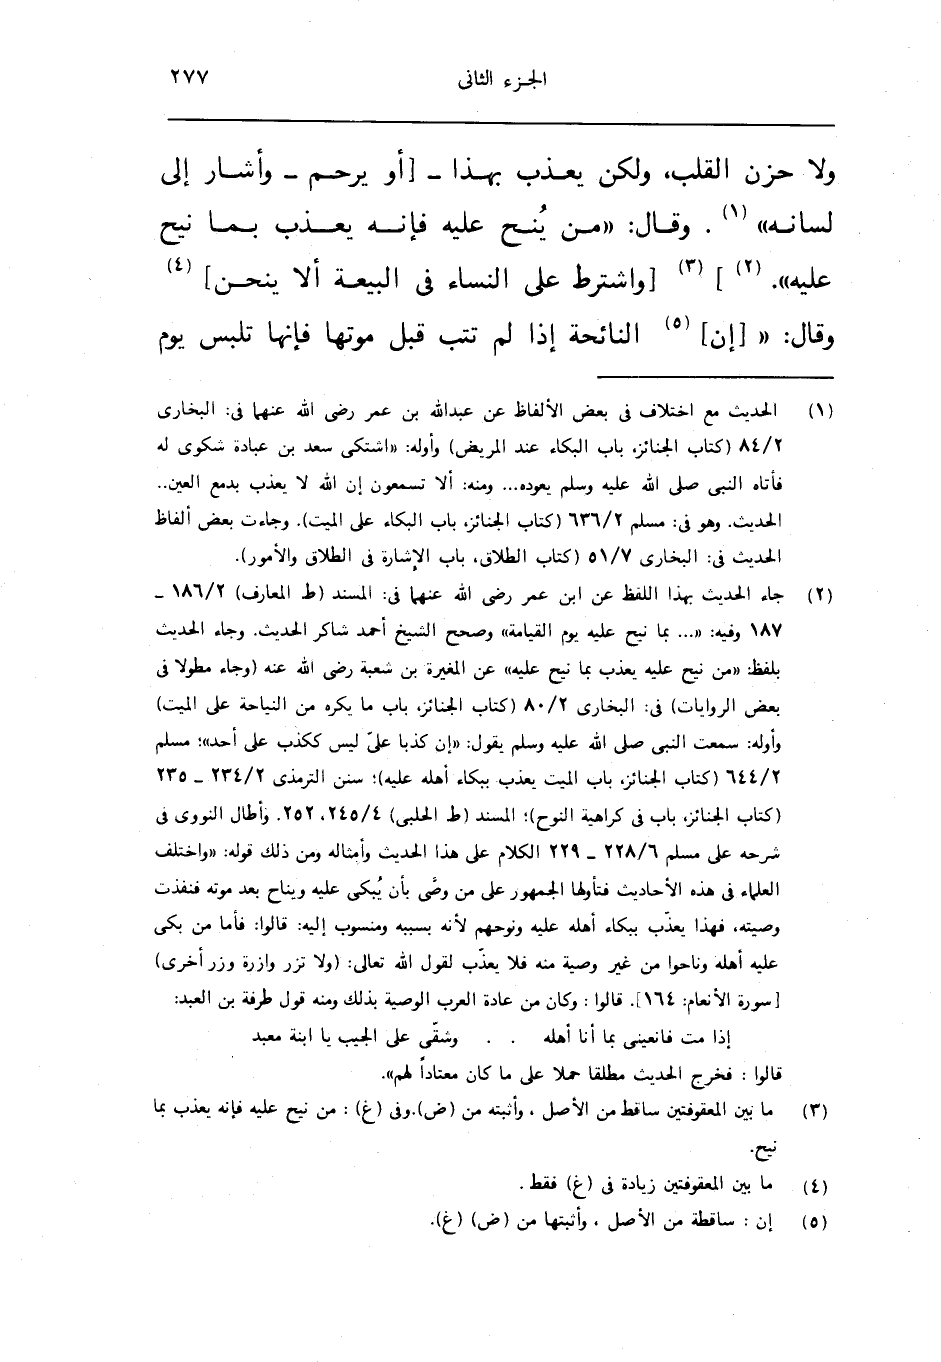 الجزء الثانى ٢٧٧
ولا حزن القلب، ولكن يعذب بهذا ـ [أو يرحم ـ وأشار إلى
لسانه» (١) . وقال: «من يُنح عليه فإنه يعذب بما نيح
عليه». (٢) ] (٣) [واشترط على النساء فى البيعة ألا ينحن] (٤)
وقال: « [إن] (٥) النائحة إذا لم تتب قبل موتها فإنها تلبس يوم
(١) الحديث مع اختلاف فى بعض الألفاظ عن عبدالله بن عمر رضى الله عنهما فى: البخارى
٨٤/٢ (كتاب الجنائز، باب البكاء عند المريض) وأوله: «اشتكى سعد بن عبادة شكوى له
فأتاه النبى صلى الله عليه وسلم يعوده... ومنه: ألا تسمعون إن الله لا يعذب بدمع العين..
الحديث. وهو فى: مسلم ٦٣٦/٢ (كتاب الجنائز، باب البكاء على الميت). وجاءت بعض ألفاظ
الحديث فى: البخارى ٥١/٧ (كتاب الطلاق، باب الإشارة فى الطلاق والأمور).
(٢) جاء الحديث بهذا اللفظ عن ابن عمر رضى الله عنهما فى: المسند (ط المعارف) ١٨٦/٢ ـ
١٨٧ وفيه: «... بما نيح عليه يوم القيامة» وصحح الشيخ أحمد شاكر الحديث. وجاء الحديث
بلفظ: «من نيح عليه يعذب بما نيح عليه» عن المغيرة بن شعبة رضى الله عنه (وجاء مطولا فى
بعض الروايات) فى: البخارى ٨٠/٢ (كتاب الجنائز، باب ما يكره من النياحة على الميت)
وأوله: سمعت النبى صلى الله عليه وسلم يقول: «إن كذبا علىّ ليس ككذب على أحد»؛ مسلم
٦٤٤/٢ (كتاب الجنائز، باب الميت يعذب ببكاء أهله عليه)؛ سنن الترمذى ٢٣٤/٢ ـ ٢٣٥
(كتاب الجنائز، باب فى كراهية النوح)؛ المسند (ط الحلبى) ٢٤٥/٤، ٢٥٢. وأطال النووى فى
شرحه على مسلم ٢٢٨/٦ ـ ٢٢٩ الكلام على هذا الحديث وأمثاله ومن ذلك قوله: «واختلف
العلماء فى هذه الأحاديث فتأولها الجمهور على من وصَّى بأن يُبكى عليه ويناح بعد موته فنفذت
وصيته، فهذا يعذّب ببكاء أهله عليه ونوحهم لأنه بسببه ومنسوب إليه: قالوا: فأما من بكى
عليه أهله وناحوا من غير وصية منه فلا يعذّب لقول الله تعالى: (ولا تزر وازرة وزر أخرى)
[سورة الأنعام: ١٦٤]. قالوا : وكان من عادة العرب الوصية بذلك ومنه قول طرفة بن العبد:
إذا مت فانعينى بما أنا أهله . . وشقّى على الجيب يا ابنة معبد
قالوا : فخرج الحديث مطلقا حملا على ما كان معتاداً لهم».
(٣) ما بين المعقوفتين ساقط من الأصل ، وأثبته من (ض).وفى (غ) : من نيح عليه فإنه يعذب بما
نيح.
(٤) ما بين المعقوفتين زيادة فى (غ) فقط .
(٥) إن : ساقطة من الأصل ، وأثبتها من (ض) (غ).